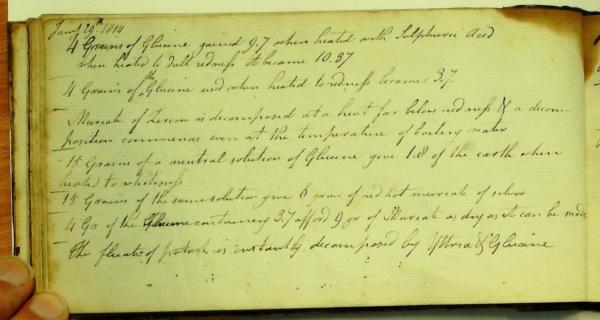 Jany 29th 1814
4 Grains of Glucine gained 9.7 when heated with Sulphuric Acid
when heated to dull redness it became 10.37
4 Grains of the Glucine used when heated to redness became 3.7.
Muriate of Zircon is decomposed at a heat far below redness & a decom-
position commences even at the temperature of boiling water
15 Grains of a neutral solution of Glucine give 1.8 of the earth when
heated to whiteness
15 Grains of the same solution give 6 grns of red hot muriate of silver
4 Gr of the Glucine containing 3.7 afford 9 gr of Muriate as dry as it can be made
The fluate of potash is instantly decomposed by Yttria & Glucine